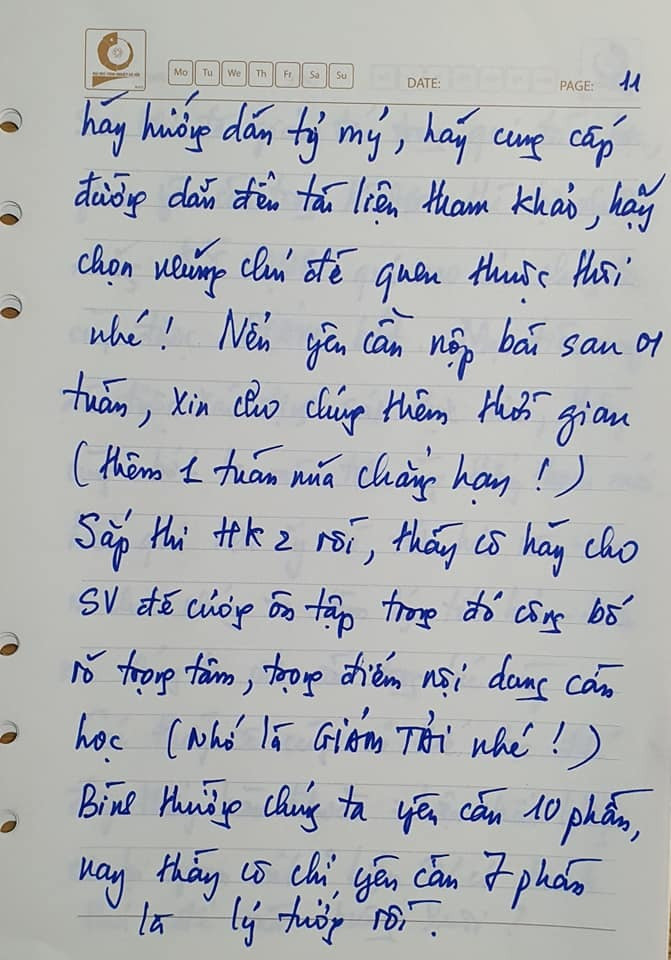 Mo Tu We Th Fr Sa Su DATE: PAGE: 11
hãy hướng dẫn tỷ mỷ, hãy cung cấp
đường dẫn đến tài liệu tham khảo, hãy
chọn những chủ đề quen thuộc thôi
nhé! Nếu yêu cầu nộp bài sau 01
tuần, xin cho chúng thêm thời gian
(thêm 1 tuần nữa chẳng hạn!)
Sắp thi HK 2 rồi, thầy cô hãy cho
SV đề cương ôn tập trong đó công bố
rõ trọng tâm, trọng điểm nội dung cần
học (Nhớ là GIẢM TẢI nhé!)
Bình thường chúng ta yêu cầu 10 phần,
nay thầy cô chỉ yêu cầu 7 phần
là lý tưởng rồi.